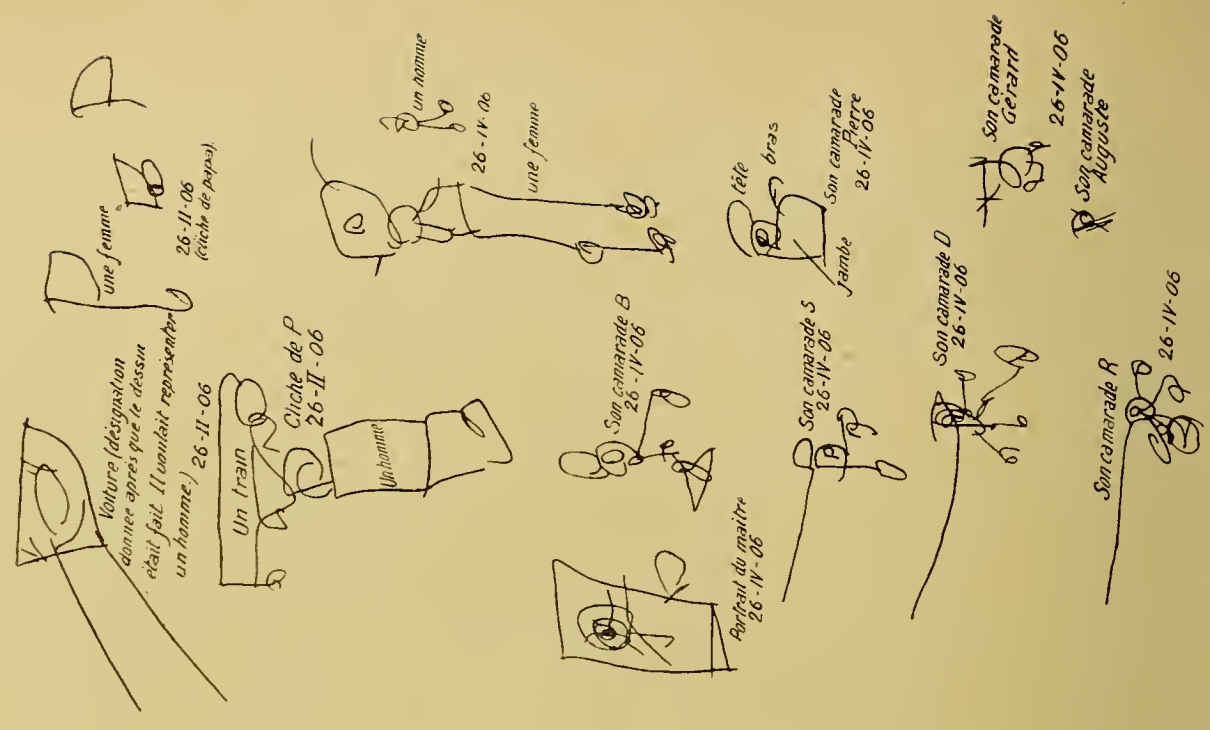 Voiture (désignation
donnée après que le dessin
était fait Il voulait représenter
un homme.) 26-II-06
une femme
26-II-06
(cliché de papa).
Un train
Cliché de P
26-II-06
Un homme
un homme
26-IV-06
une femme
Son camarade B
26-IV-06
Portrait du maître
26-IV-06
tête
bras
Son camarade
Pierre
26-IV-06
Jambe
Son camarade S
26-IV-06
Son camarade D
26-IV-06
Son camarade
Gérard
26-IV-06
Son camarade
Auguste
Son camarade R
26-IV-06